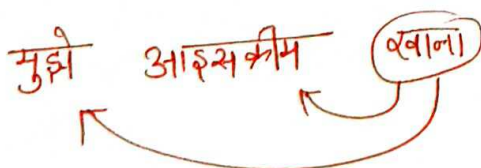 मुझे आइसक्रीम खाना